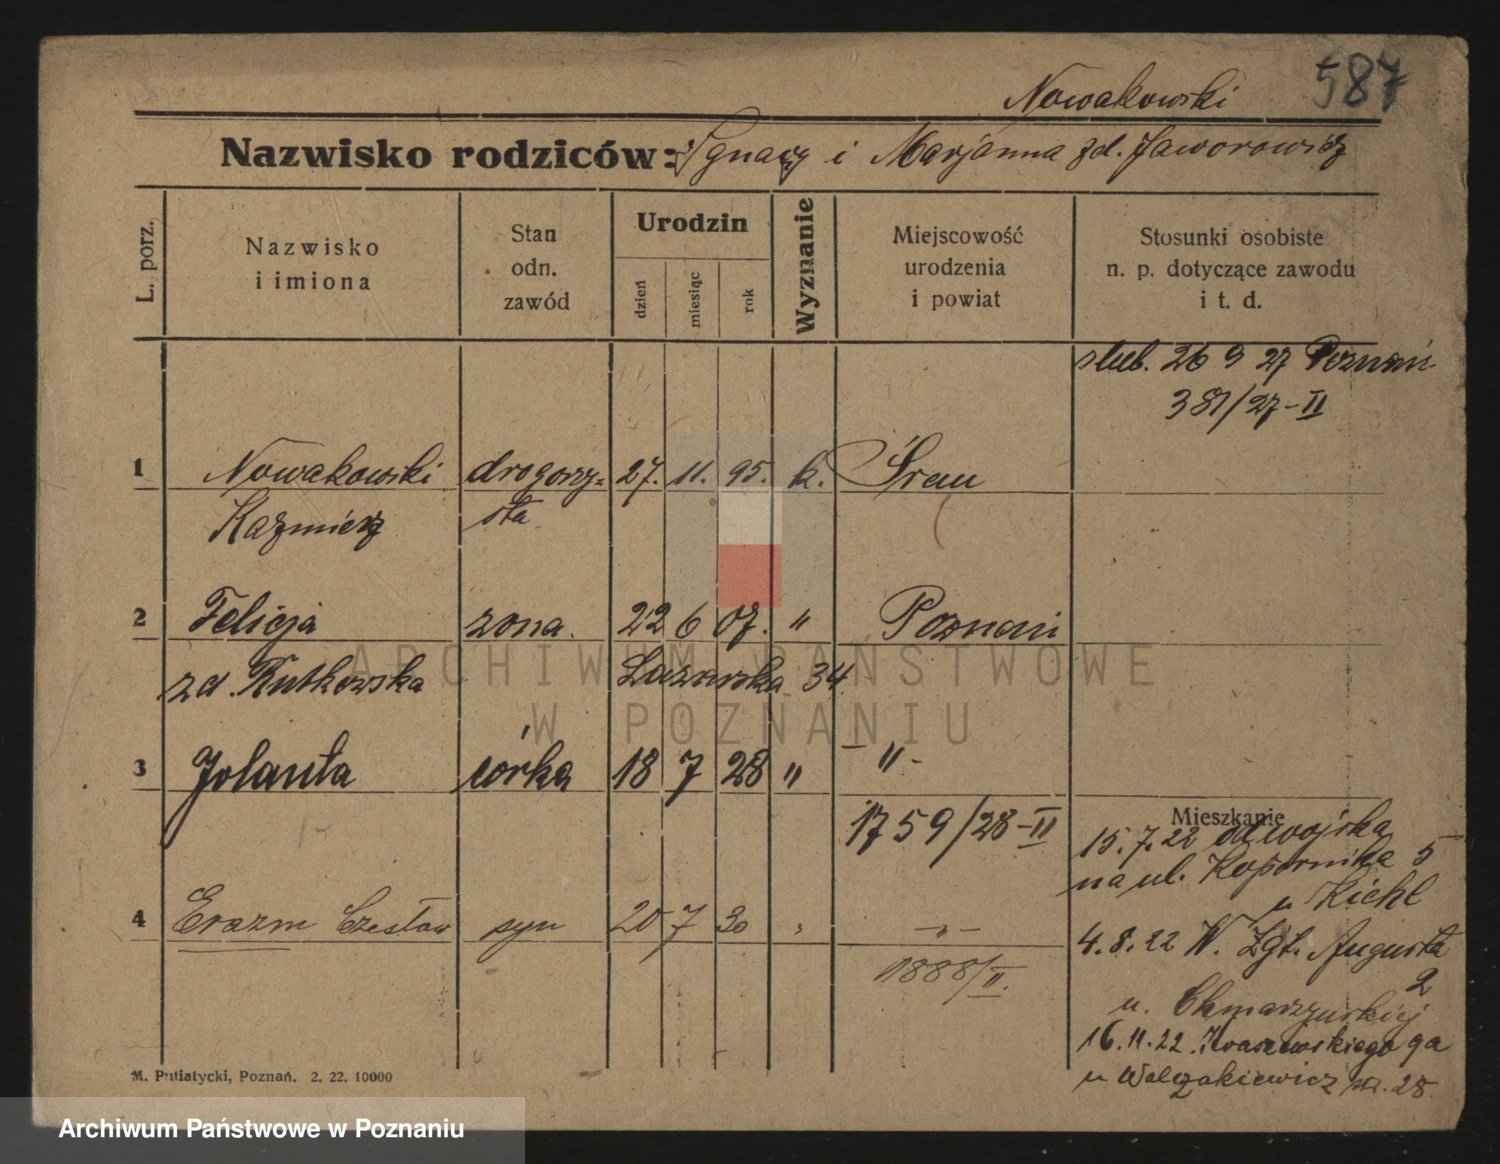 587
Nowakowski
Nazwisko rodziców: Ignacy i Marjanna zd. Jaworowicz
L. porz.
Nazwisko i imiona
Stan odn. zawód
Urodzin
dzień
miesiąc
rok
Wyznanie
Miejscowość urodzenia i powiat
Stosunki osobiste n. p. dotyczące zawodu i t. d.
slub. 26 9 27 Poznań
381/27-II
1 Nowakowski drogerzy= 27. 11. 95. k. Śrem
Kazmierz sta
2 Felicja zona. 22 6 07. " Poznań
zd. Rutkowska Lazarska 34
3 Jolanta córka 18 7 28 " - " -
1759/28-II
Mieszkanie
15.7.22 od wojska
na ul. Kopernika 5
u Kiehl
4 Erazm Czesław syn 20 7 30 " - " -
1888/II.
4.8.22 W. Zgł. Augusta
2
u.
16.11.22. Kraszewskiego 9a
u Walczakiewicz nr. 28.
M. Putiatycki, Poznań. 2. 22. 10000
ARCHIWUM PAŃSTWOWE
W POZNANIU
Archiwum Państwowe w Poznaniu